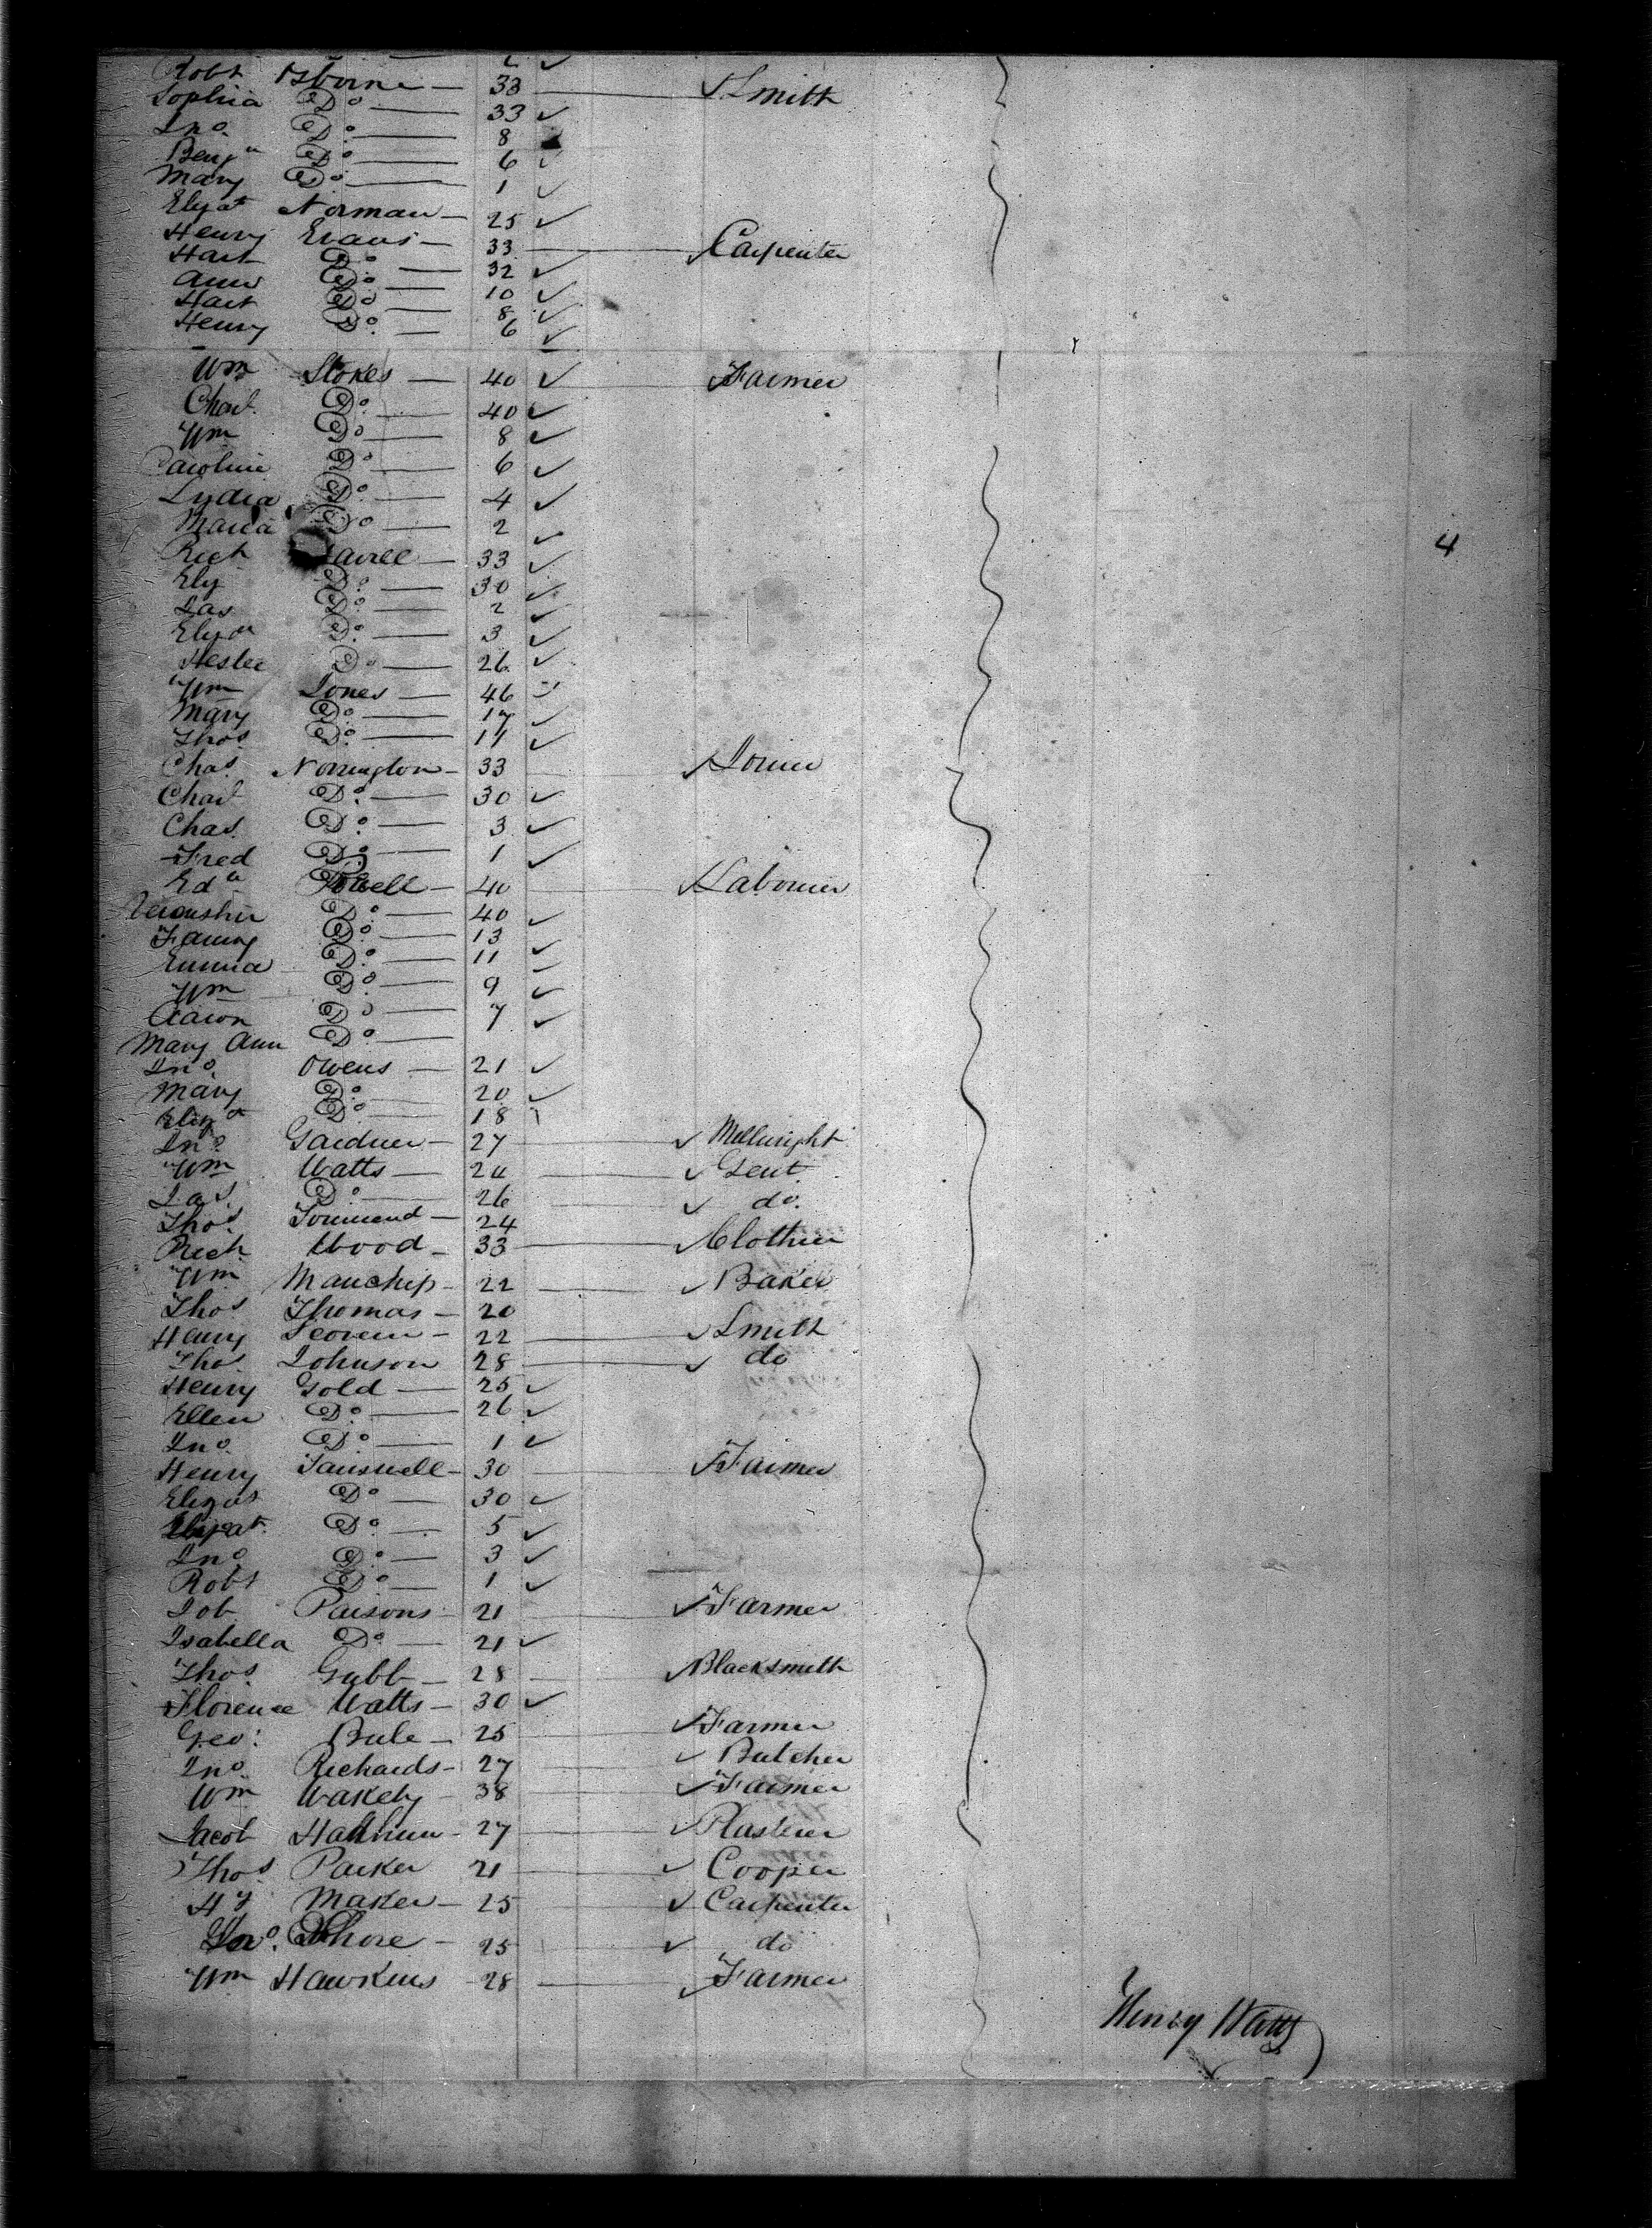 Robt Osborne — 33 — ✓ Smith
Sophia Do — 33 ✓
Jno. Do — 8
Benjn Do — 6 ✓
Mary Do — 1 ✓
Elizat Norman — 25 ✓
Henry Evans — 33 — ✓ Carpenter
Hart Do — 32 ✓
Ann Do — 10 ✓
Hart Do — 8 ✓
Henry Do — 6 ✓
Wm Stokes — 40 ✓ ✓ Farmer
Chart. Do — 40 ✓
Wm Do — 8 ✓
Caroline Do — 6 ✓
Lydia Do — 4 ✓
Maria Do — 2 ✓
4
Rich — 33 ✓
Elz Do — 30 ✓
Jas Do — 2 ✓
Eliza Do — 3 ✓
Hester Do — 26 ✓
Wm Jones — 46 ✓
Mary Do — 17 ✓
Thos Do — 11 ✓
Chas. Norrington — 33 — ✓ Joiner
Chart Do — 30 ✓
Chas. Do — 3 ✓
Fred Do — 1 ✓
Edd Powell — 40 — ✓ Labourer
Do — 40 ✓
Fanny Do — 13 ✓
Emma Do — 11 ✓
Wm Do — 9 ✓
Aaron Do — 7 ✓
Mary Ann Do —
Jno. Owens — 21 ✓
Mary Do — 20 ✓
Eliza Do — 18
Jno. Gardner — 27 — ✓ Millwright
Wm Watts — 24 — ✓ Gent.
Jas. Do — 26 — ✓ do.
Thos Townsend — 24
Rich Wood — 33 — ✓ Clothier
Wm Manchip — 22 — ✓ Baker
Thos Thomas — 20
Henry — 22 — ✓ Smith
Thos. Johnson 28 — ✓ do
Henry Gold — 25 ✓
Ellen Do — 26 ✓
Jno. Do — 1 ✓
Henry Tanswell — 30 — ✓ Farmer
Elizat Do — 30 ✓
Do — 5 ✓
Jno. Do — 3 ✓
Robt Do — 1 ✓
Job Parsons — 21 — ✓ Farmer
Isabella Do — 21 ✓
Thos. Gubb — 28 — ✓ Blacksmith
Florence Watts — 30 ✓
Geo: Bule — 25 — ✓ Farmer
Jno. Richards — 27 — ✓ Butcher
Wm Wakely — 38 — ✓ Farmer
Jacob — 27 — ✓ Plasterer
Thos Parker 21 — ✓ Cooper
Hy Maker — 25 — ✓ Carpenter
Jno. Shore — 25 ✓ do
Wm Hawkins — 28 — ✓ Farmer
Henry Watts